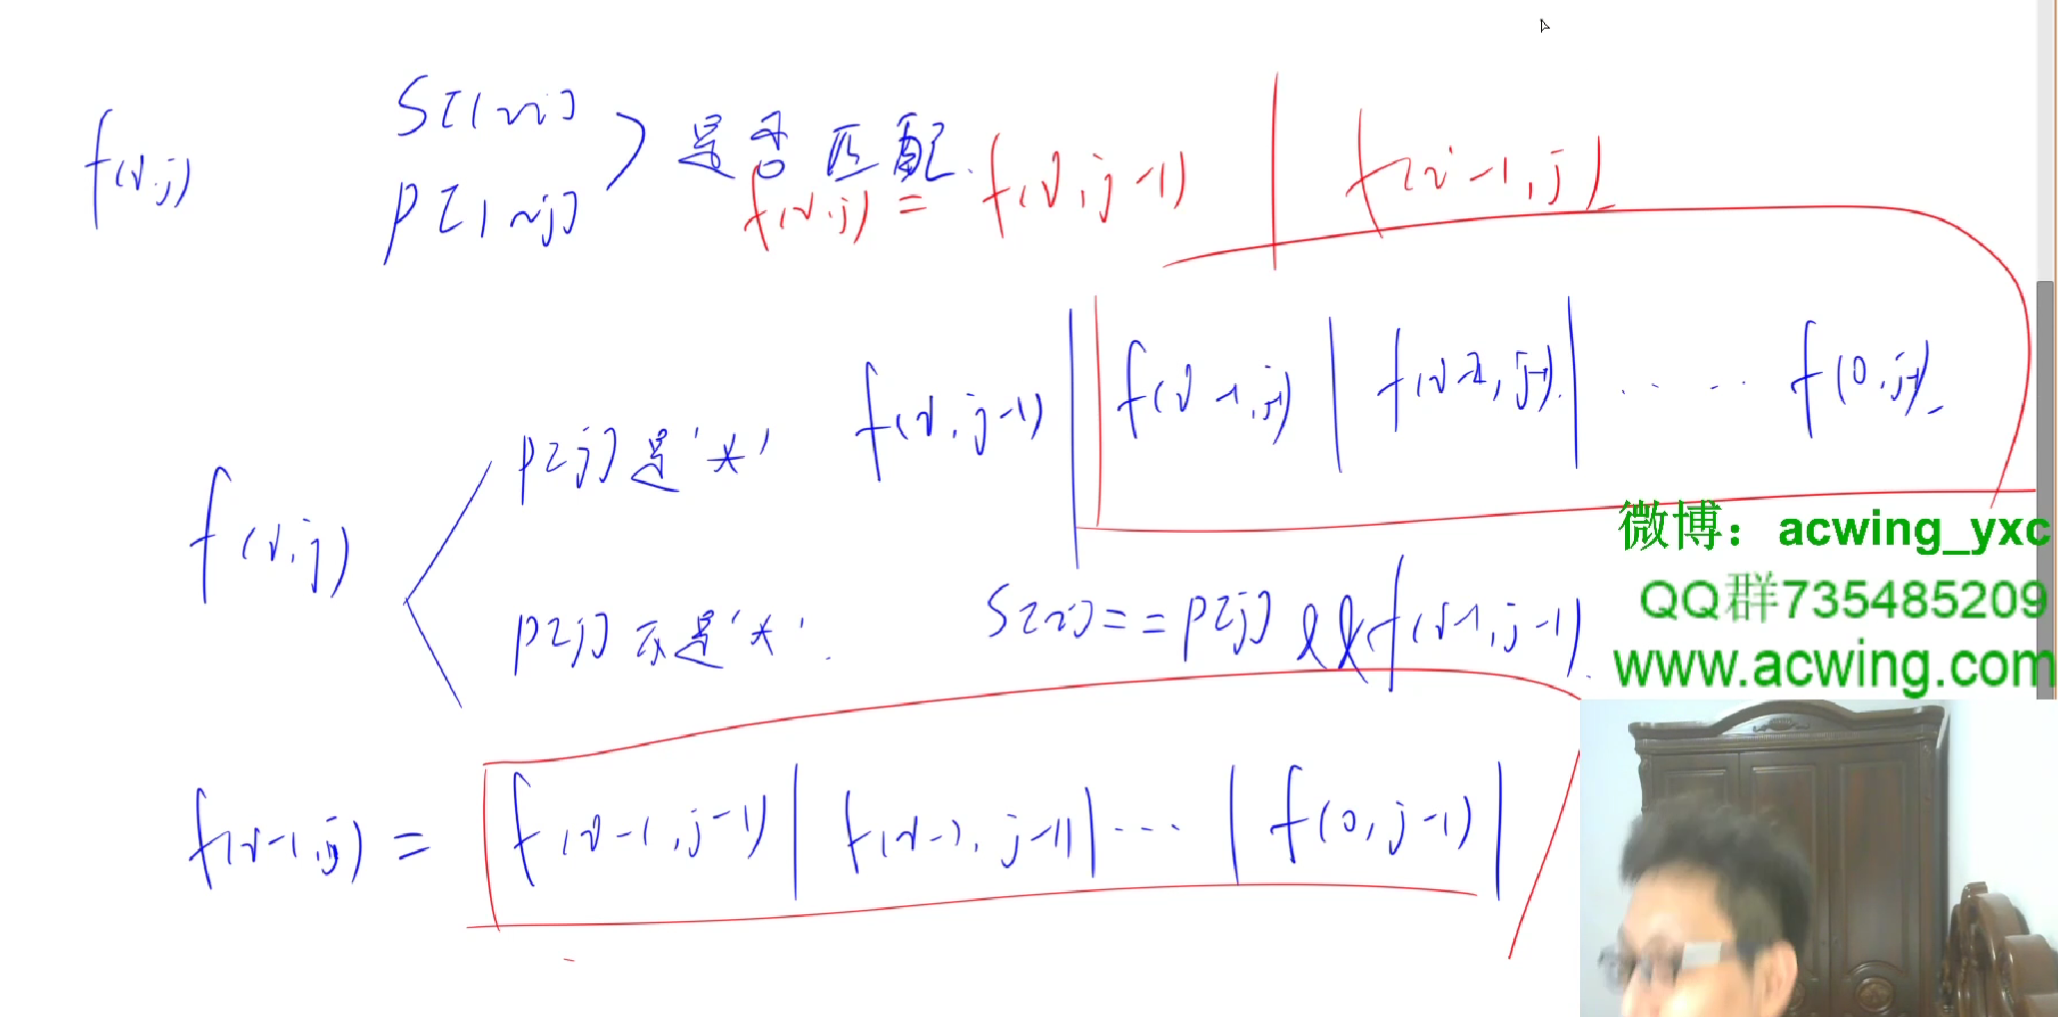 f(i,j) S[1~i] P[1~j] 是否匹配.
f(i,j) = f(i,j-1) | f(i-1,j)
f(i,j)
p[j]是'*' f(i,j-1) | f(i-1,j-1) | f(i-2,j-1) | ...... f(0,j-1)
p[j]不是'*'. S[i]==p[j] && f(i-1,j-1).
f(i-1,j) = f(i-1,j-1) | f(i-2,j-1) | ... | f(0,j-1) |
微博：acwing_yxc
QQ群735485209
www.acwing.com